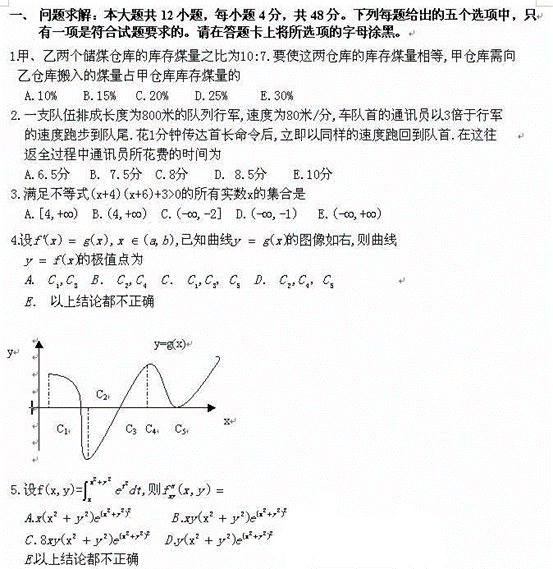 一、 问题求解：本大题共 12 小题，每小题 4 分，共 48 分。下列每题给出的五个选项中，只
有一项是符合试题要求的。请在答题卡上将所选项的字母涂黑。
1.甲、乙两个储煤仓库的库存煤量之比为10:7.要使这两仓库的库存煤量相等,甲仓库需向
乙仓库搬入的煤量占甲仓库库存煤量的
A.10% B.15% C.20% D.25% E.30%
2.一支队伍排成长度为800米的队列行军,速度为80米/分,车队首的通讯员以3倍于行军
的速度跑步到队尾.花1分钟传达首长命令后,立即以同样的速度跑回到队首.在这往
返全过程中通讯员所花费的时间为
A.6.5分 B. 7.5分 C.8分 D. 8.5分 E.10分
3.满足不等式(x+4)(x+6)+3>0的所有实数x的集合是
A.[4,+∞) B.(4,+∞) C.(-∞,-2] D.(-∞,-1) E.(-∞,+∞)
4.设f'(x) = g(x), x ∈ (a, b),已知曲线y = g(x)的图像如右,则曲线
y = f(x)的极值点为
A. C₁,C₃ B. C₂,C₄ C. C₁,C₃, C₅ D. C₂,C₄, C₅
E. 以上结论都不正确
y=g(x)
y
C₂
C₁ C₃ C₄ C₅ x
5.设f(x,y)=∫ₓ^(x²+y²) e^(t²)dt,则f''ₓᵧ(x, y) =
A.x(x² + y²)e^(x²+y²)² B.xy(x² + y²)e^(x²+y²)²
C.8xy(x² + y²)e^(x²+y²)² D.y(x² + y²)e^(x²+y²)²
E以上结论都不正确